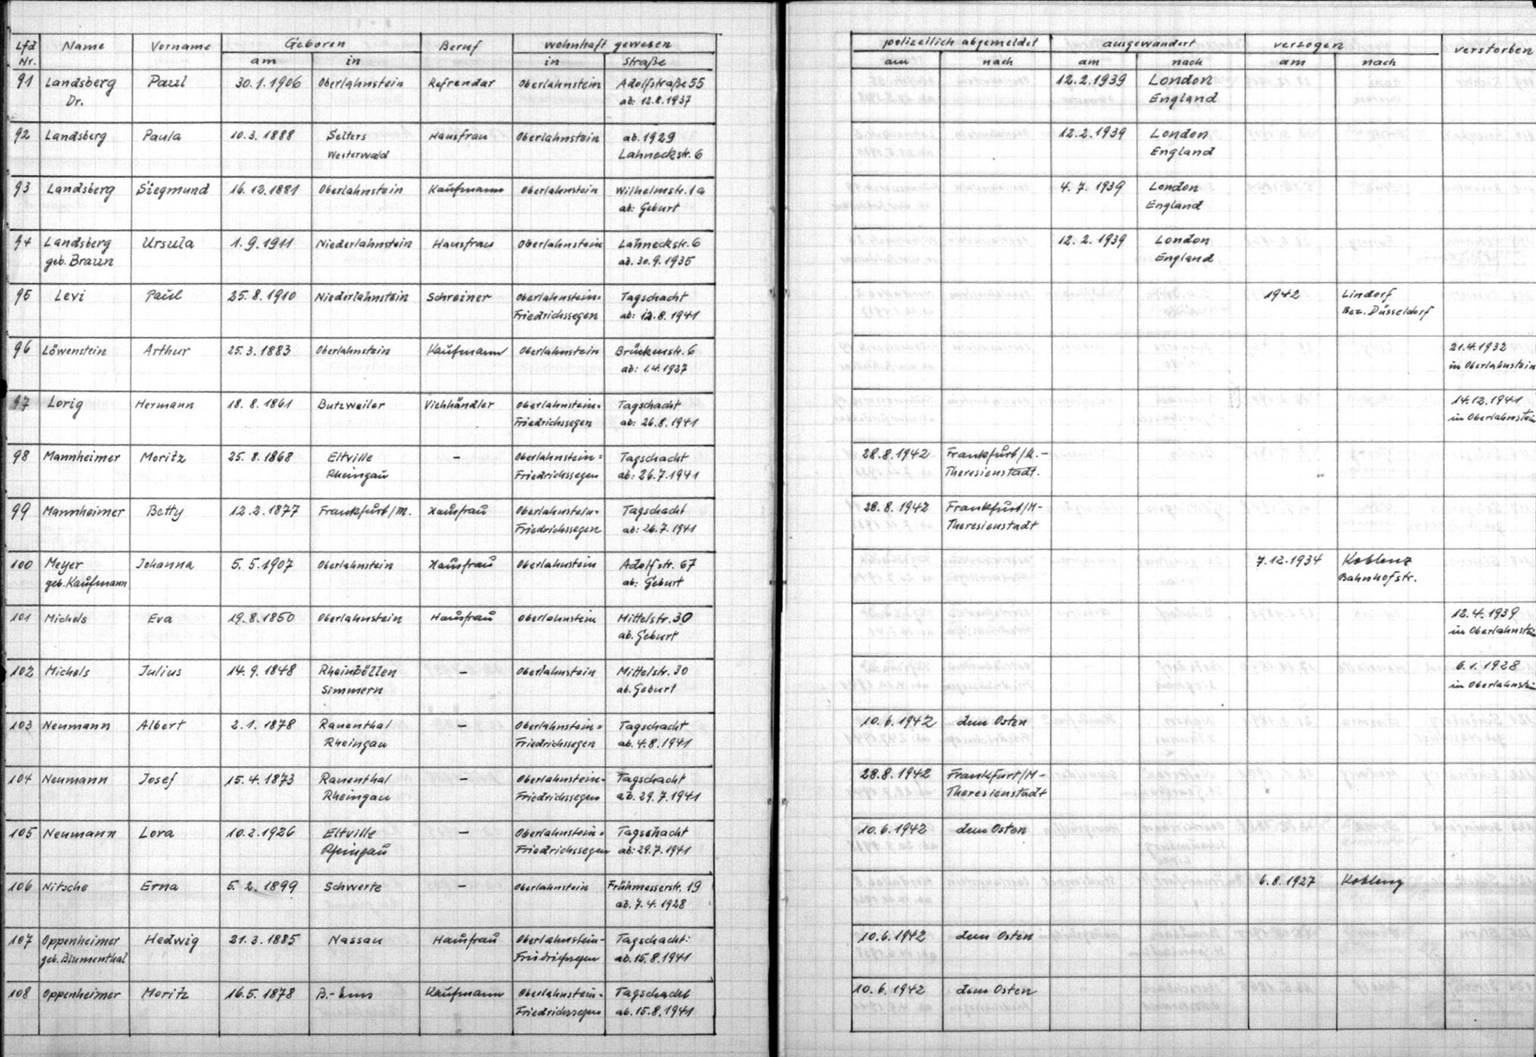 Lfd Nr. Name Vorname Geboren Beruf wohnhaft gewesen polizeilich abgemeldet ausgewandert verzogen verstorben
am in in Straße am nach am nach am nach
91 Landsberg Paul 30.1.1906 Oberlahnstein Refrendar Oberlahnstein Adolfstraße 55 12.2.1939 London
Dr. ab: 12.8.1937 England
92 Landsberg Paula 10.3.1888 Selters Hausfrau Oberlahnstein ab. 1929 12.2.1939 London
Westerwald Lahneckstr. 6 England
93 Landsberg Siegmund 16.12.1881 Oberlahnstein Kaufmann Oberlahnstein Wilhelmstr. 1a 4.7.1939 London
ab: Geburt England
94 Landsberg Ursula 1.9.1911 Niederlahnstein Hausfrau Oberlahnstein Lahneckstr. 6 12.2.1939 London
geb. Braun ab. 30.9.1935 England
95 Levi Paul 25.8.1910 Niederlahnstein Schreiner Oberlahnstein- Tagschacht 1942 Lindorf
Friedrichssegen ab: 12.8.1941 Bez. Düsseldorf
96 Löwenstein Arthur 25.3.1883 Oberlahnstein Kaufmann Oberlahnstein Brückenstr. 6 21.4.1932
ab: 1.4.1927 in Oberlahnstein
97 Lorig Hermann 18.8.1861 Butzweiler Viehhändler Oberlahnstein- Tagschacht 14.12.1941
Friedrichssegen ab: 26.8.1941 in Oberlahnstein
98 Mannheimer Moritz 25.8.1868 Eltville – Oberlahnstein- Tagschacht 28.8.1942 Frankfurt/M.-
Rheingau Friedrichssegen ab: 26.7.1941 Theresienstadt.
99 Mannheimer Betty 12.2.1877 Frankfurt/M. Hausfrau Oberlahnstein- Tagschacht 28.8.1942 Frankfurt/M-
Friedrichssegen ab: 26.7.1941 Theresienstadt
100 Meyer Johanna 5.5.1907 Oberlahnstein Hausfrau Oberlahnstein Adolfstr. 67 7.12.1934 Koblenz
geb. Kaufmann ab: Geburt Bahnhofstr.
101 Michels Eva 19.8.1850 Oberlahnstein Hausfrau Oberlahnstein Mittelstr. 30 12.4.1939
ab. Geburt in Oberlahnstein
102 Michels Julius 14.9.1848 Rheinböllen – Oberlahnstein Mittelstr. 30 6.1.1928
Simmern ab. Geburt in Oberlahnstein
103 Neumann Albert 2.1.1878 Rauenthal – Oberlahnstein- Tagschacht 10.6.1942 dem Osten
Rheingau Friedrichssegen ab. 4.8.1941
104 Neumann Josef 15.4.1873 Rauenthal – Oberlahnstein- Tagschacht 28.8.1942 Frankfurt/M-
Rheingau Friedrichssegen ab. 29.7.1941 Theresienstadt
105 Neumann Lora 10.2.1926 Eltville – Oberlahnstein- Tagschacht 10.6.1942 dem Osten
Rheingau Friedrichssegen ab: 29.7.1941
106 Nitsche Erna 5.2.1899 Schwerte – Oberlahnstein Frühmesserstr. 19 6.8.1927 Koblenz
ab. 7.4.1928
107 Oppenheimer Hedwig 21.3.1885 Nassau Hausfrau Oberlahnstein- Tagschacht: 10.6.1942 dem Osten
geb. Blumenthal Friedrichssegen ab. 15.8.1941
108 Oppenheimer Moritz 16.5.1878 B.-Ems Kaufmann Oberlahnstein- Tagschacht 10.6.1942 dem Osten
Friedrichssegen ab. 15.8.1941